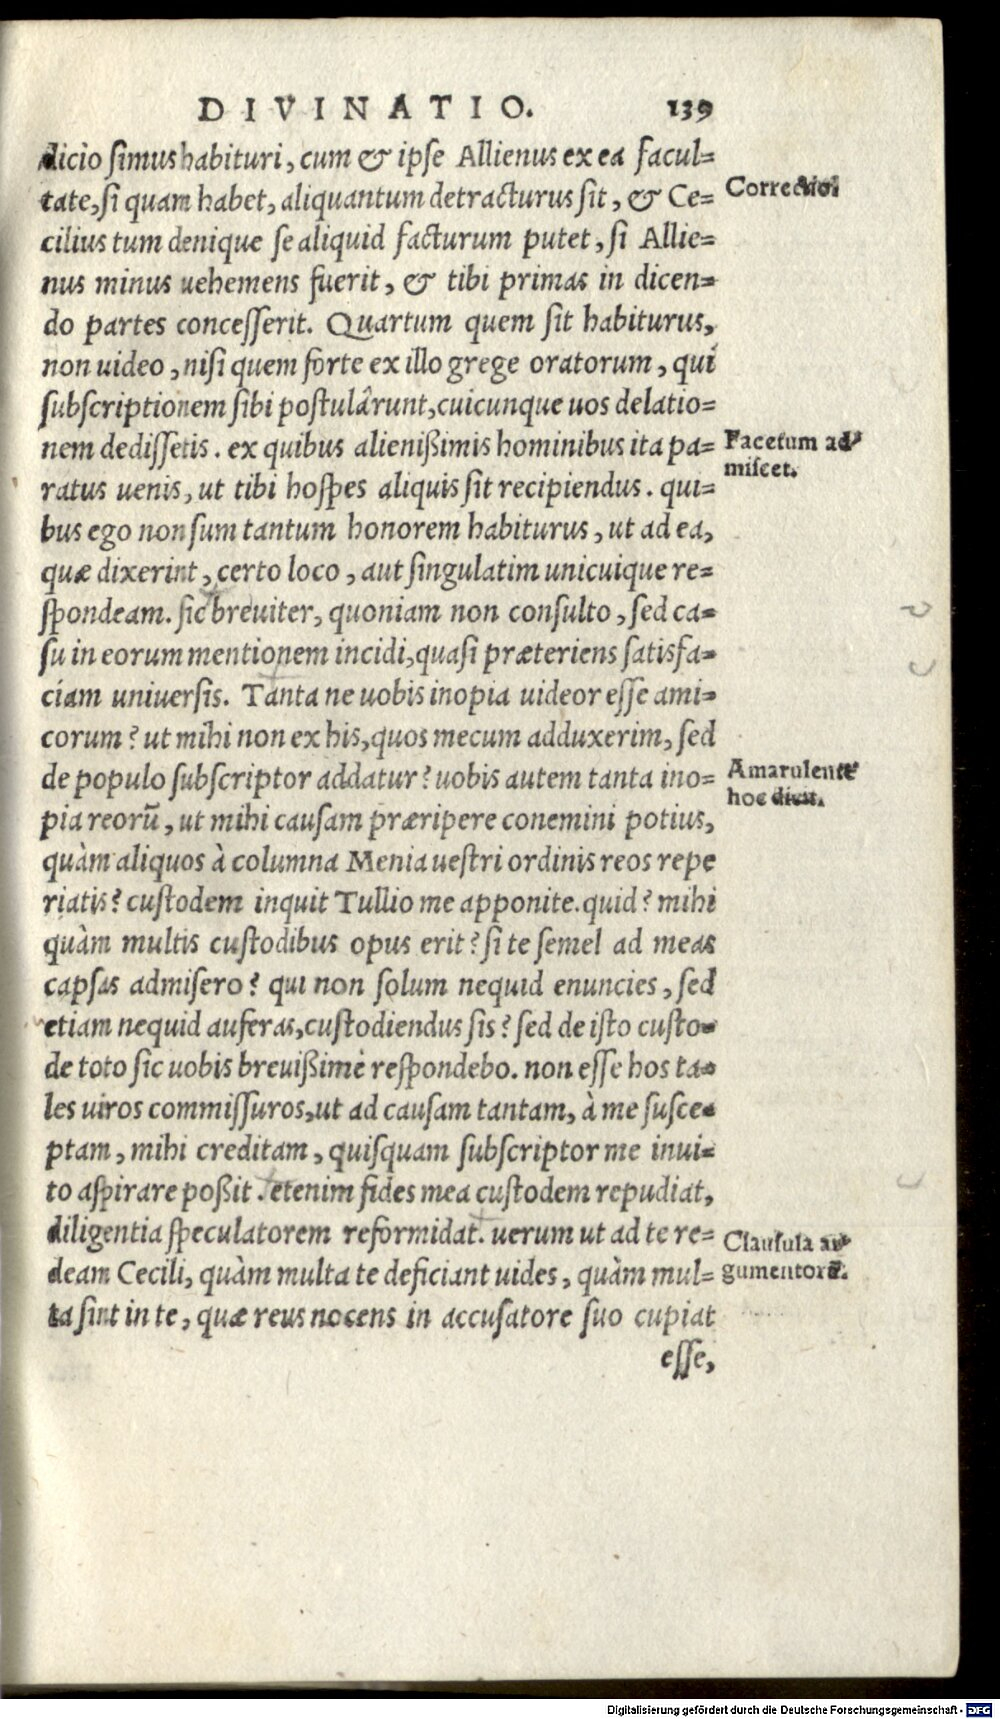 DIVINATIO. 139
dicio simus habituri, cum & ipse Allienus ex ea facul=
tate, si quam habet, aliquantum detracturus sit, & Ce=
Correctio.
cilius tum denique se aliquid facturum putet, si Allie=
nus minus uehemens fuerit, & tibi primas in dicen=
do partes concesserit. Quartum quem sit habiturus,
non uideo, nisi quem forte ex illo grege oratorum, qui
subscriptionem sibi postulârunt, cuicunque uos delatio=
nem dedissetis. ex quibus alienißimis hominibus ita pa=
Facetum ad
miscet.
ratus uenis, ut tibi hospes aliquis sit recipiendus. qui=
bus ego non sum tantum honorem habiturus, ut ad ea,
quæ dixerint, certo loco, aut singulatim unicuique re=
spondeam. sic breuiter, quoniam non consulto, sed ca=
su in eorum mentionem incidi, quasi præteriens satisfa=
ciam uniuersis. Tanta ne uobis inopia uideor esse ami=
corum? ut mihi non ex his, quos mecum adduxerim, sed
de populo subscriptor addatur? uobis autem tanta ino=
Amarulente
hoc dicit.
pia reorū, ut mihi causam præripere conemini potius,
quàm aliquos à columna Menia uestri ordinis reos repe
riatis? custodem inquit Tullio me apponite. quid? mihi
quàm multis custodibus opus erit? si te semel ad meas
capsas admisero? qui non solum nequid enuncies, sed
etiam nequid auferas, custodiendus sis? sed de isto custo=
de toto sic uobis breuißimè respondebo. non esse hos ta=
les uiros commissuros, ut ad causam tantam, à me susce=
ptam, mihi creditam, quisquam subscriptor me inui=
to aspirare poßit. etenim fides mea custodem repudiat,
diligentia speculatorem reformidat. uerum ut ad te re=
Clausula ar
gumentorū.
deam Cecili, quàm multa te deficiant uides, quàm mul=
ta sint in te, quæ reus nocens in accusatore suo cupiat
esse,
Digitalisierung gefördert durch die Deutsche Forschungsgemeinschaft - DFG